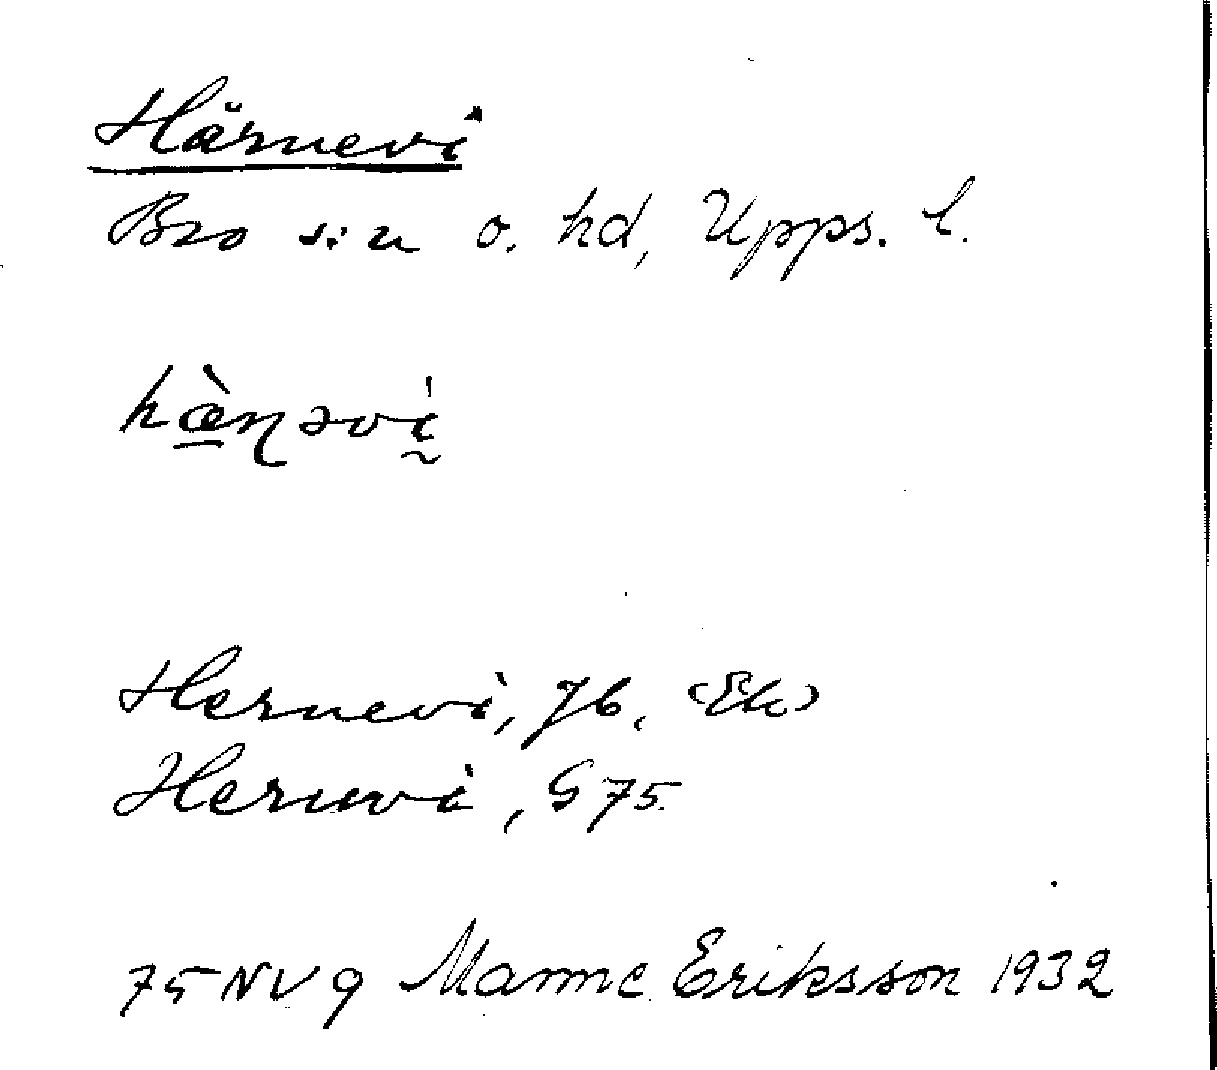 Härnevi
Bro sn o. hd, Upps. l.
hæ̀ɳəvi
Hernevi, Jb. (Ek)
Hernevi, G 75.
75 NV 9 Manne Eriksson 1932